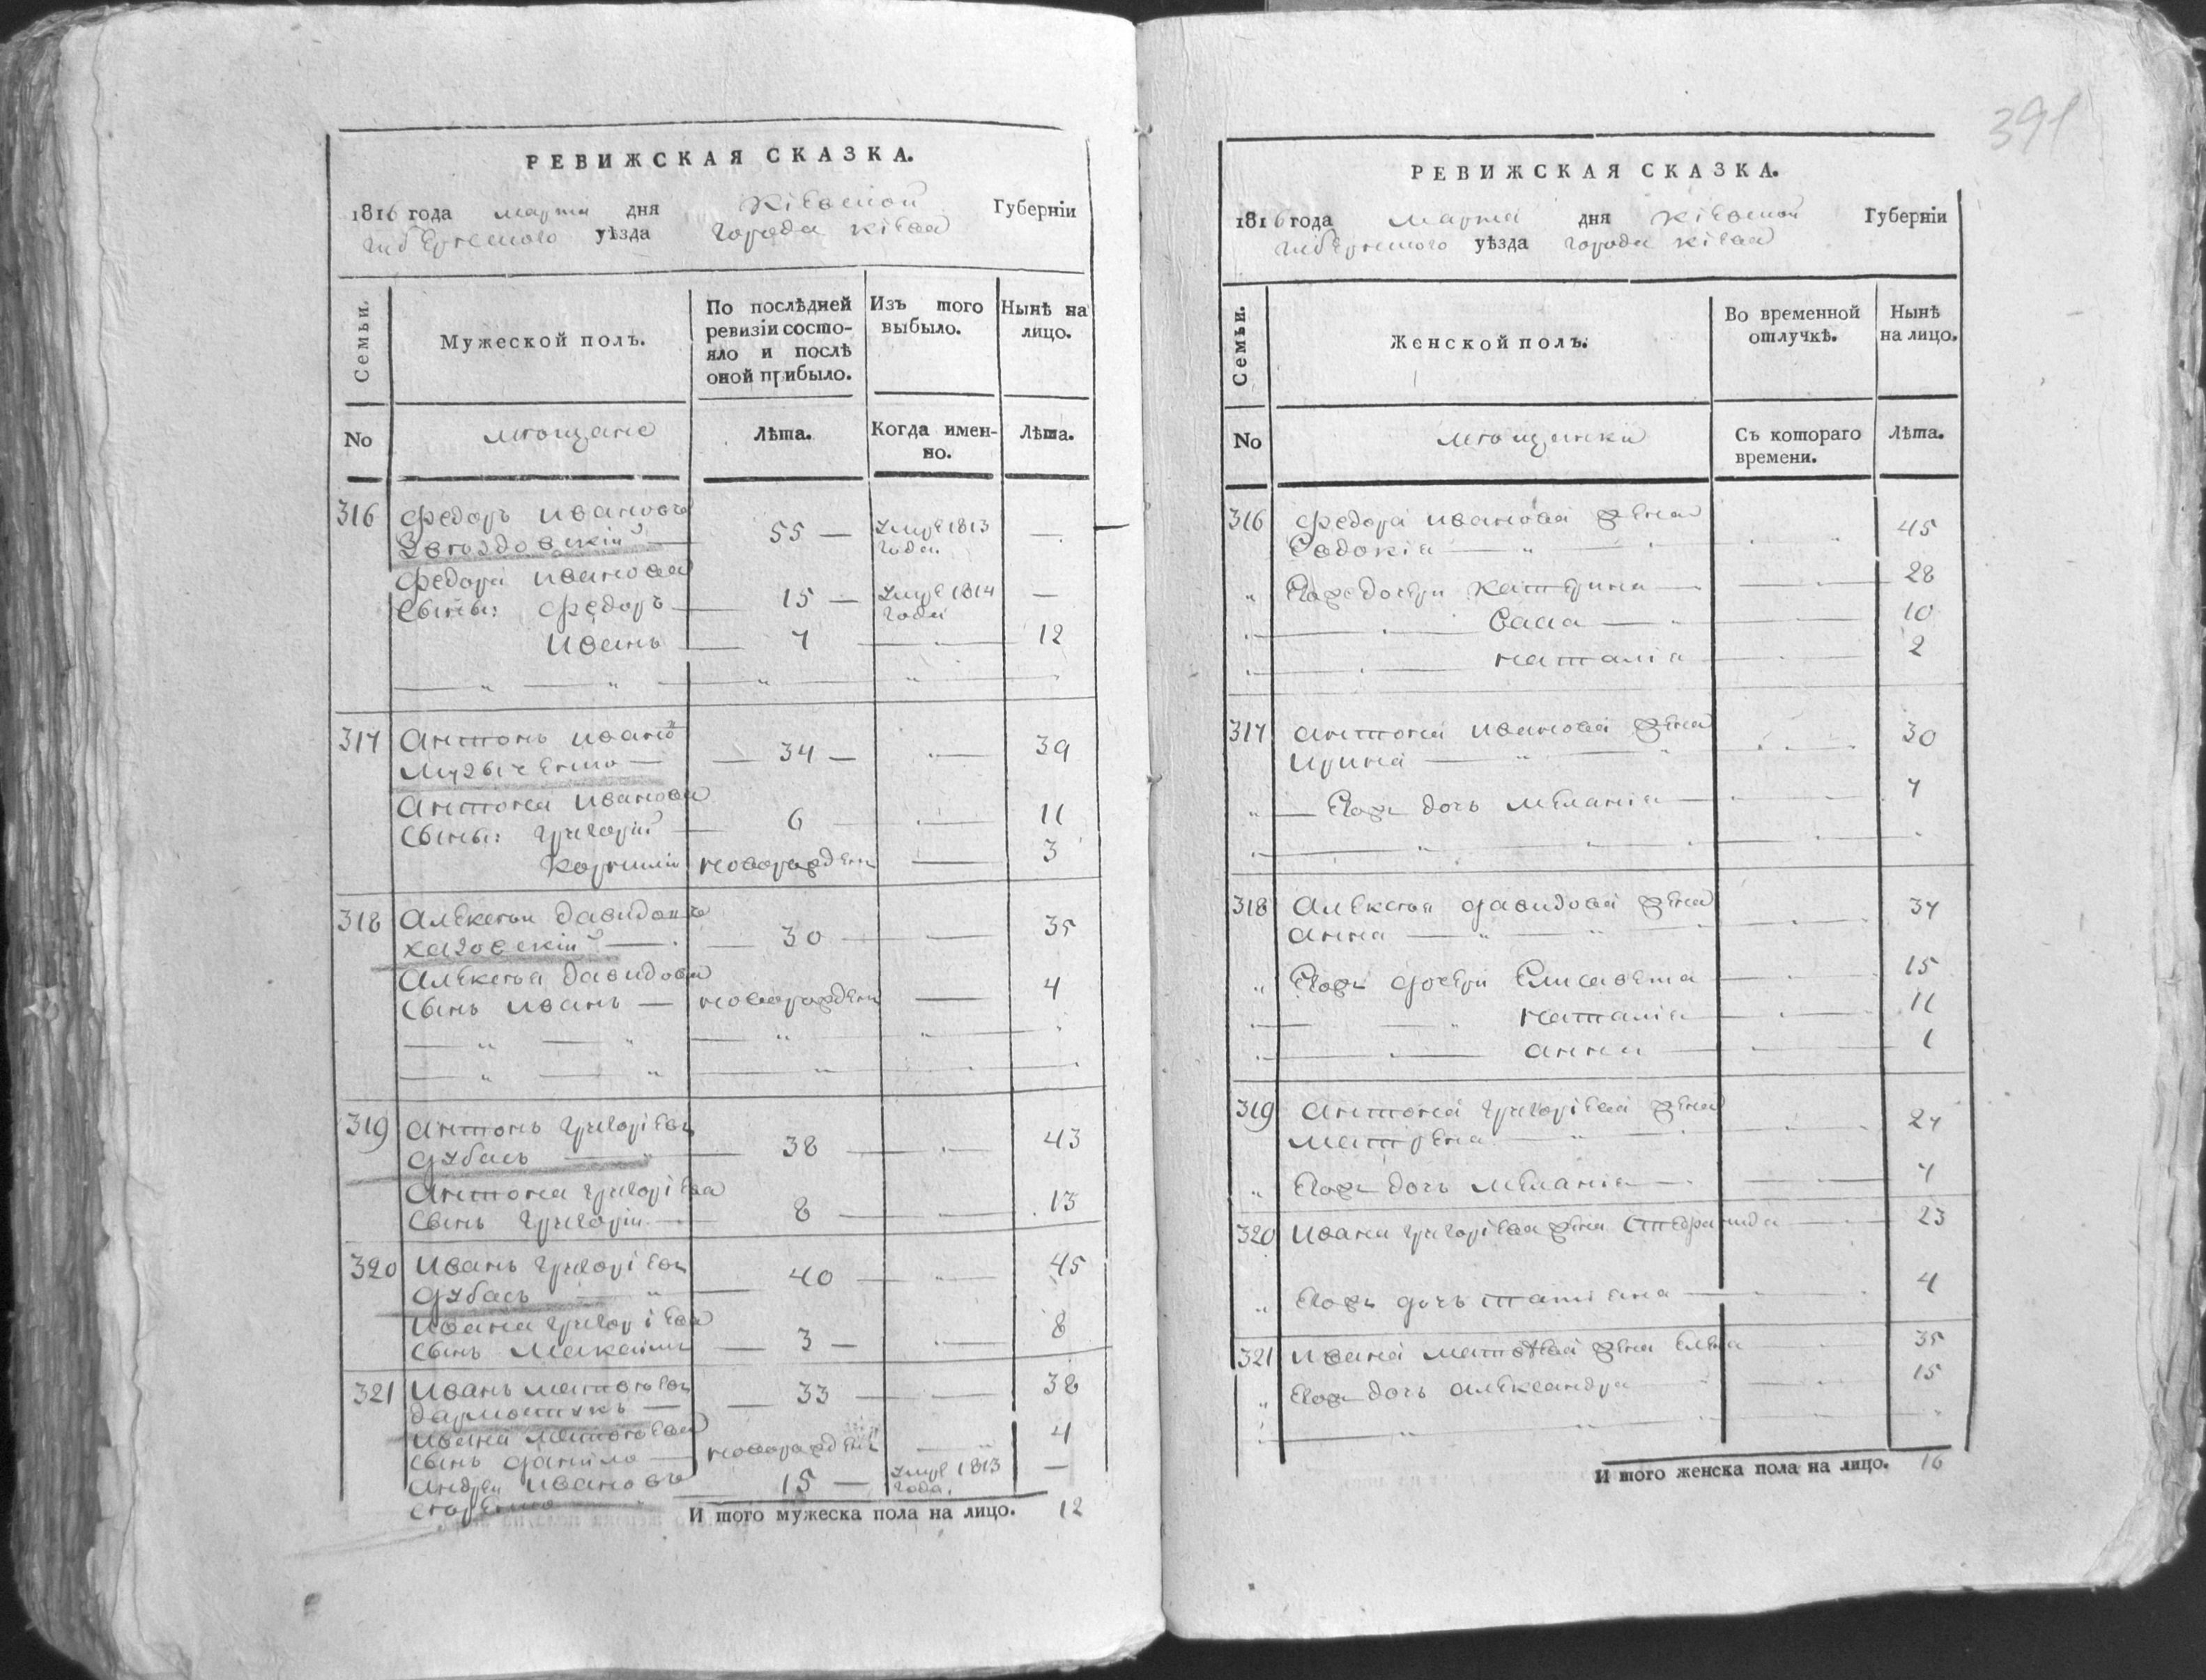 РЕВИЖСКАЯ СКАЗКА.
1816 года марта дня Кіевской Губерніи
уѣзда города Кіева
Семьи.
Мужеской полъ.
По послѣдней ревизіи состояло и послѣ оной прибыло.
Изъ того выбыло.
Нынѣ на лицо.
No
мѣщане
Лѣта.
Когда имен-
но.
Лѣта.
316 Федоръ Ивановъ
55 — 1813
года. —
Федора Иванова
сыны: Федоръ — 15 — 1814
года —
Иванъ — 7 — 12
317 Антонъ Ивано
Музыченко — 34 — 39
Антона Иванова
сыны: Григорій — 6 — 11
Корнилій новорожден — 3
318 Алексѣй Давидовъ
— 30 — 35
Алексѣя Давидова
сынъ Иванъ — новорожден — 4
319 Антонъ Григоріев
Дубасъ — 38 — 43
Антона Григоріева
сынъ Григорій — 8 — 13
320 Иванъ Григоріев
Дубасъ — 40 — 45
Ивана Григоріева
сынъ Максимъ — 3 — 8
321 Иванъ Матвѣев
— 33 — 38
Ивана Матвѣева
сынъ Данило — новорожден — 4
Андрей Ивановъ
15 — 1813
года. —
И того мужеска пола на лицо. 12
391
РЕВИЖСКАЯ СКАЗКА.
1816 года марта дня Кіевской Губерніи
уѣзда города Кіева
Семьи.
Женской полъ.
Во временной отлучкѣ.
Нынѣ на лицо.
No
мѣщанки
Съ котораго
времени.
Лѣта.
316 Федора Иванова жена
Евдокія — 45
Катерина — 28
— 10
Наталія — 2
317 Антона Иванова жена
Ирина — 30
Его же дочь Меланія — 7
318 Алексѣя Давидова жена
Анна — 37
Его же дочери Елисавета — 15
Наталія — 11
Анна — 1
319 Антона Григоріева жена
Матрена — 27
Его же дочь Меланія — 7
320 Ивана Григоріева жена Стефанида — 23
Его же дочь Татіана — 4
321 Ивана Матвѣева жена Елена 35
Его же дочь Александра — 15
И того женска пола на лицо. 16